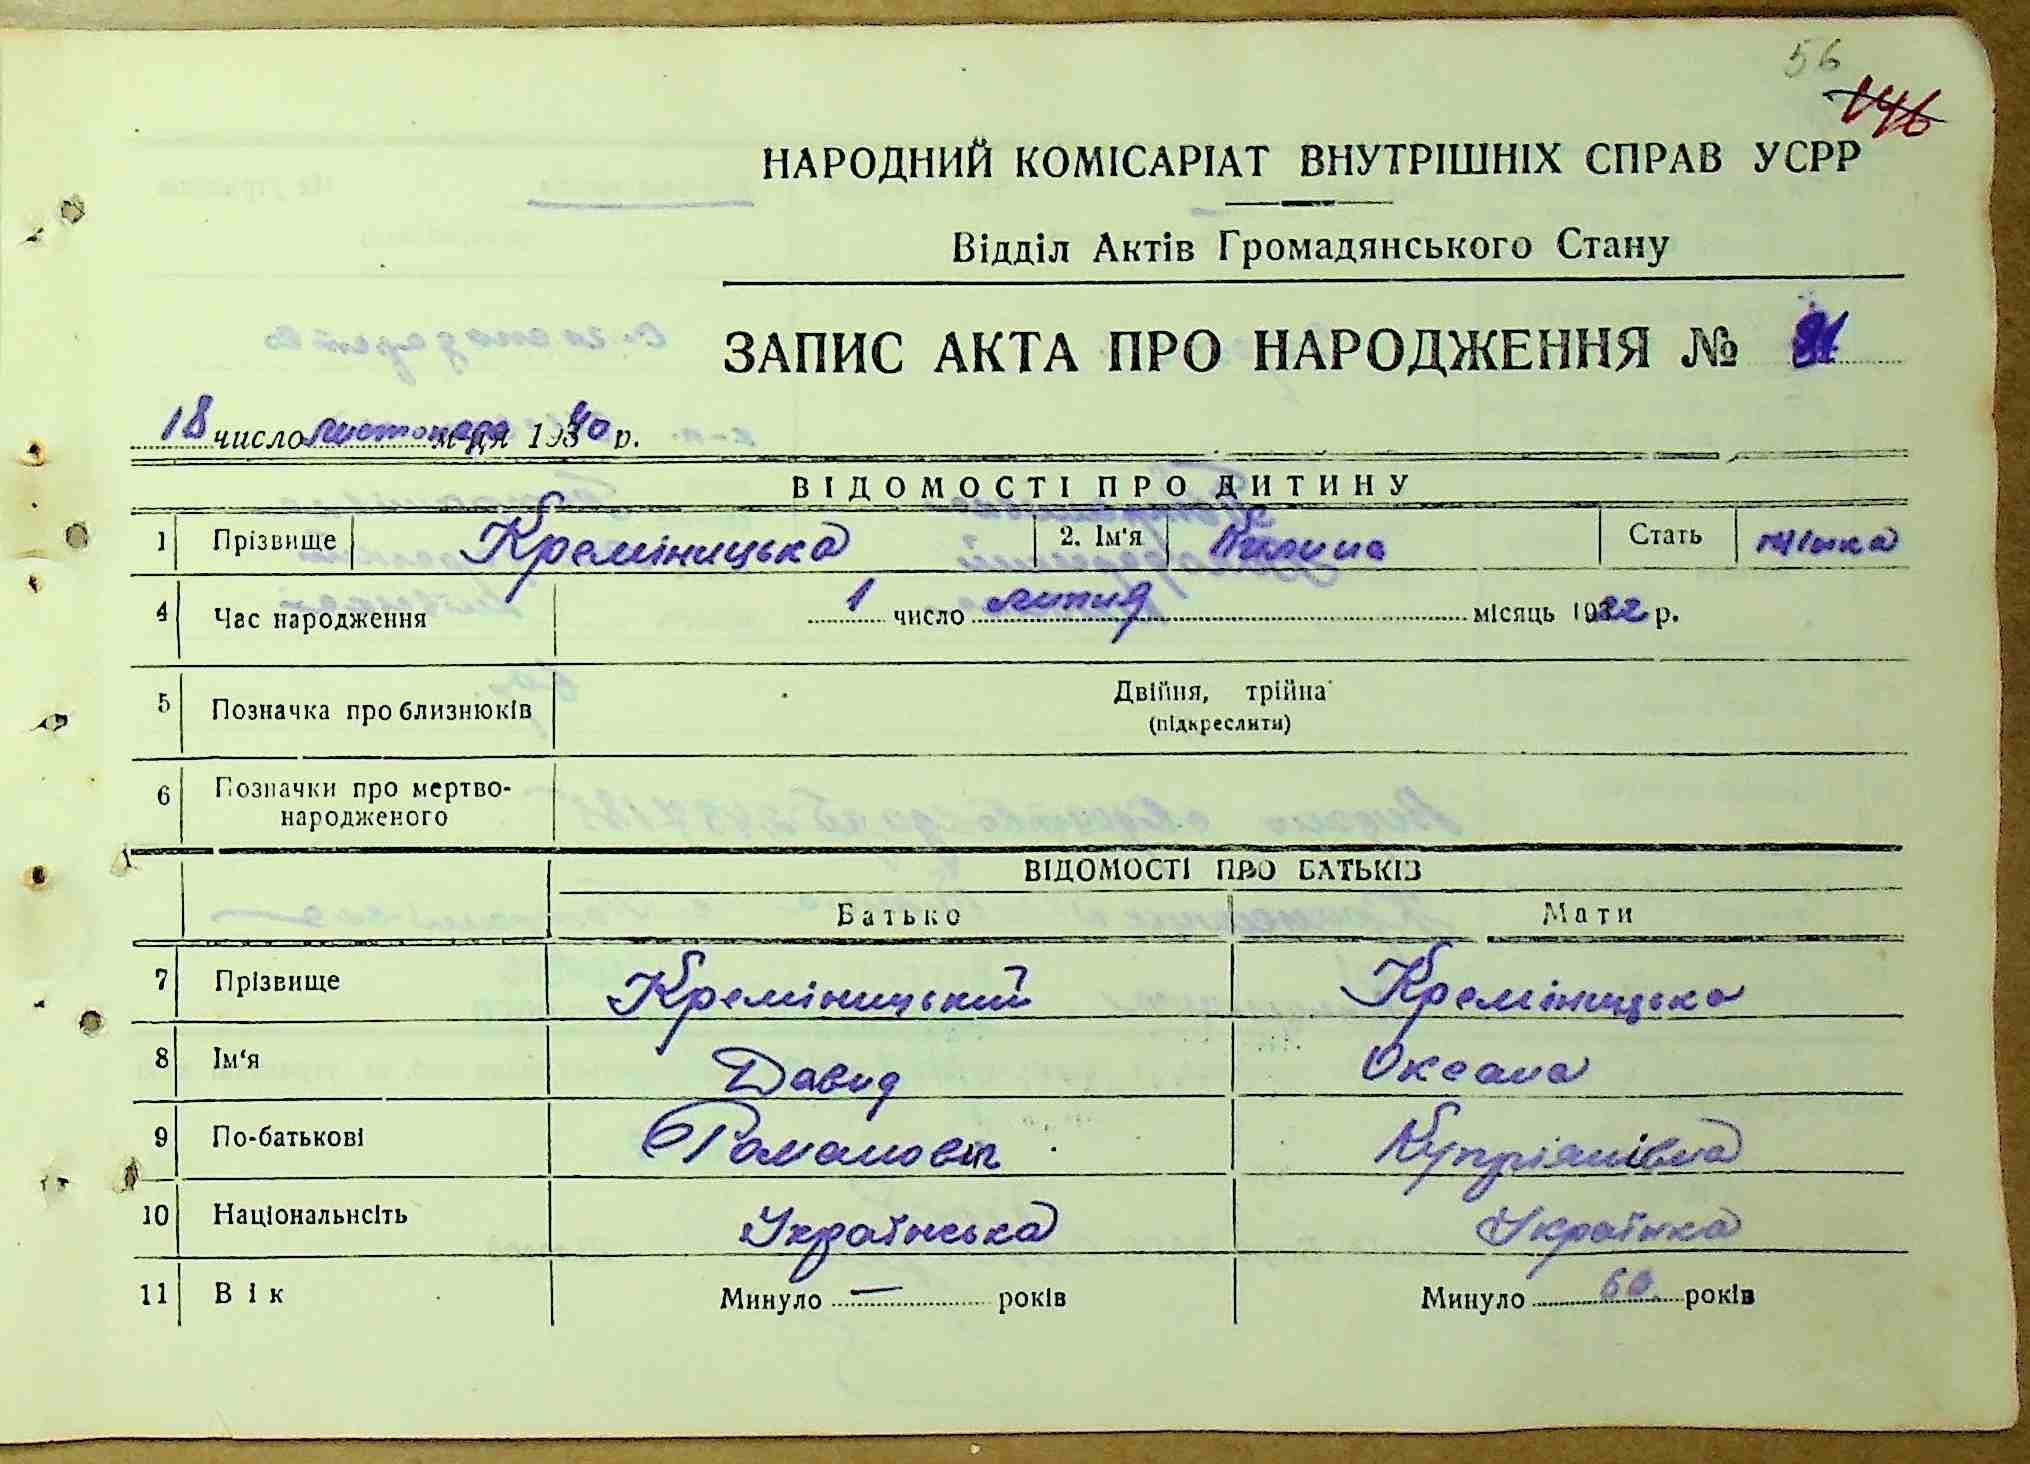 56
146
НАРОДНИЙ КОМІСАРІАТ ВНУТРІШНІХ СПРАВ УСРР
Відділ Актів Громадянського Стану
ЗАПИС АКТА ПРО НАРОДЖЕННЯ №
18 число листопада м-ця 1940 р.
ВІДОМОСТІ ПРО ДИТИНУ
1 Прізвище Кремініцька 2. Ім'я Стать жінка
4 Час народження 1 число липня місяць 1922 р.
5 Позначка про близнюків Двійня, трійна
(підкреслити)
6 Позначки про мертво-
народженого
ВІДОМОСТІ ПРО БАТЬКІВ
Батько Мати
7 Прізвище Кремініцький Кремініцька
8 Ім'я Давид Оксана
9 По-батькові Романовіч Купріянівна
10 Національнсіть Українська Українка
11 Вік Минуло — років Минуло 60 років